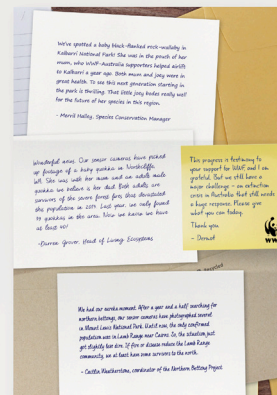 We've spotted a baby black-flanked rock-wallaby in
Kalbarri National Park! She was in the pouch of her
mum, who WWF-Australia supporters helped airlift
to Kalbarri a year ago. Both mum and joey were in
great health. To see this next generation starting in
the park is thrilling. That little joey bodes really well
for the future of her species in this region.
- Merril Halley, Species Conservation Manager
Wonderful news. Our sensor cameras have picked
up footage of a baby quokka in Northcliffe,
WA. She was with her mum and an adult male
quokka we believe is her dad. Both adults are
survivors of the severe forest fires that devastated
the population in 2015. Last year, we only found
39 quokkas in the area. Now we know we have
at least 40!
-Darren Grover, Head of Living Ecosystems
This progress is testimony to
your support for WWF and I am
grateful. But we still have a
major challenge - an extinction
crisis in Australia that still needs
a huge response. Please give
what you can today.
Thank you
- Dermot
We had our eureka moment. After a year and a half searching for
northern bettongs, our sensor cameras have photographed several
in Mount Lewis National Park. Until now, the only confirmed
population was in Lamb Range near Cairns. So, the situation just
got slightly less dire. If fire or disease reduce the Lamb Range
community, we at least have some survivors to the north.
- Caitlin Weatherstone, coordinator of the Northern Bettong Project